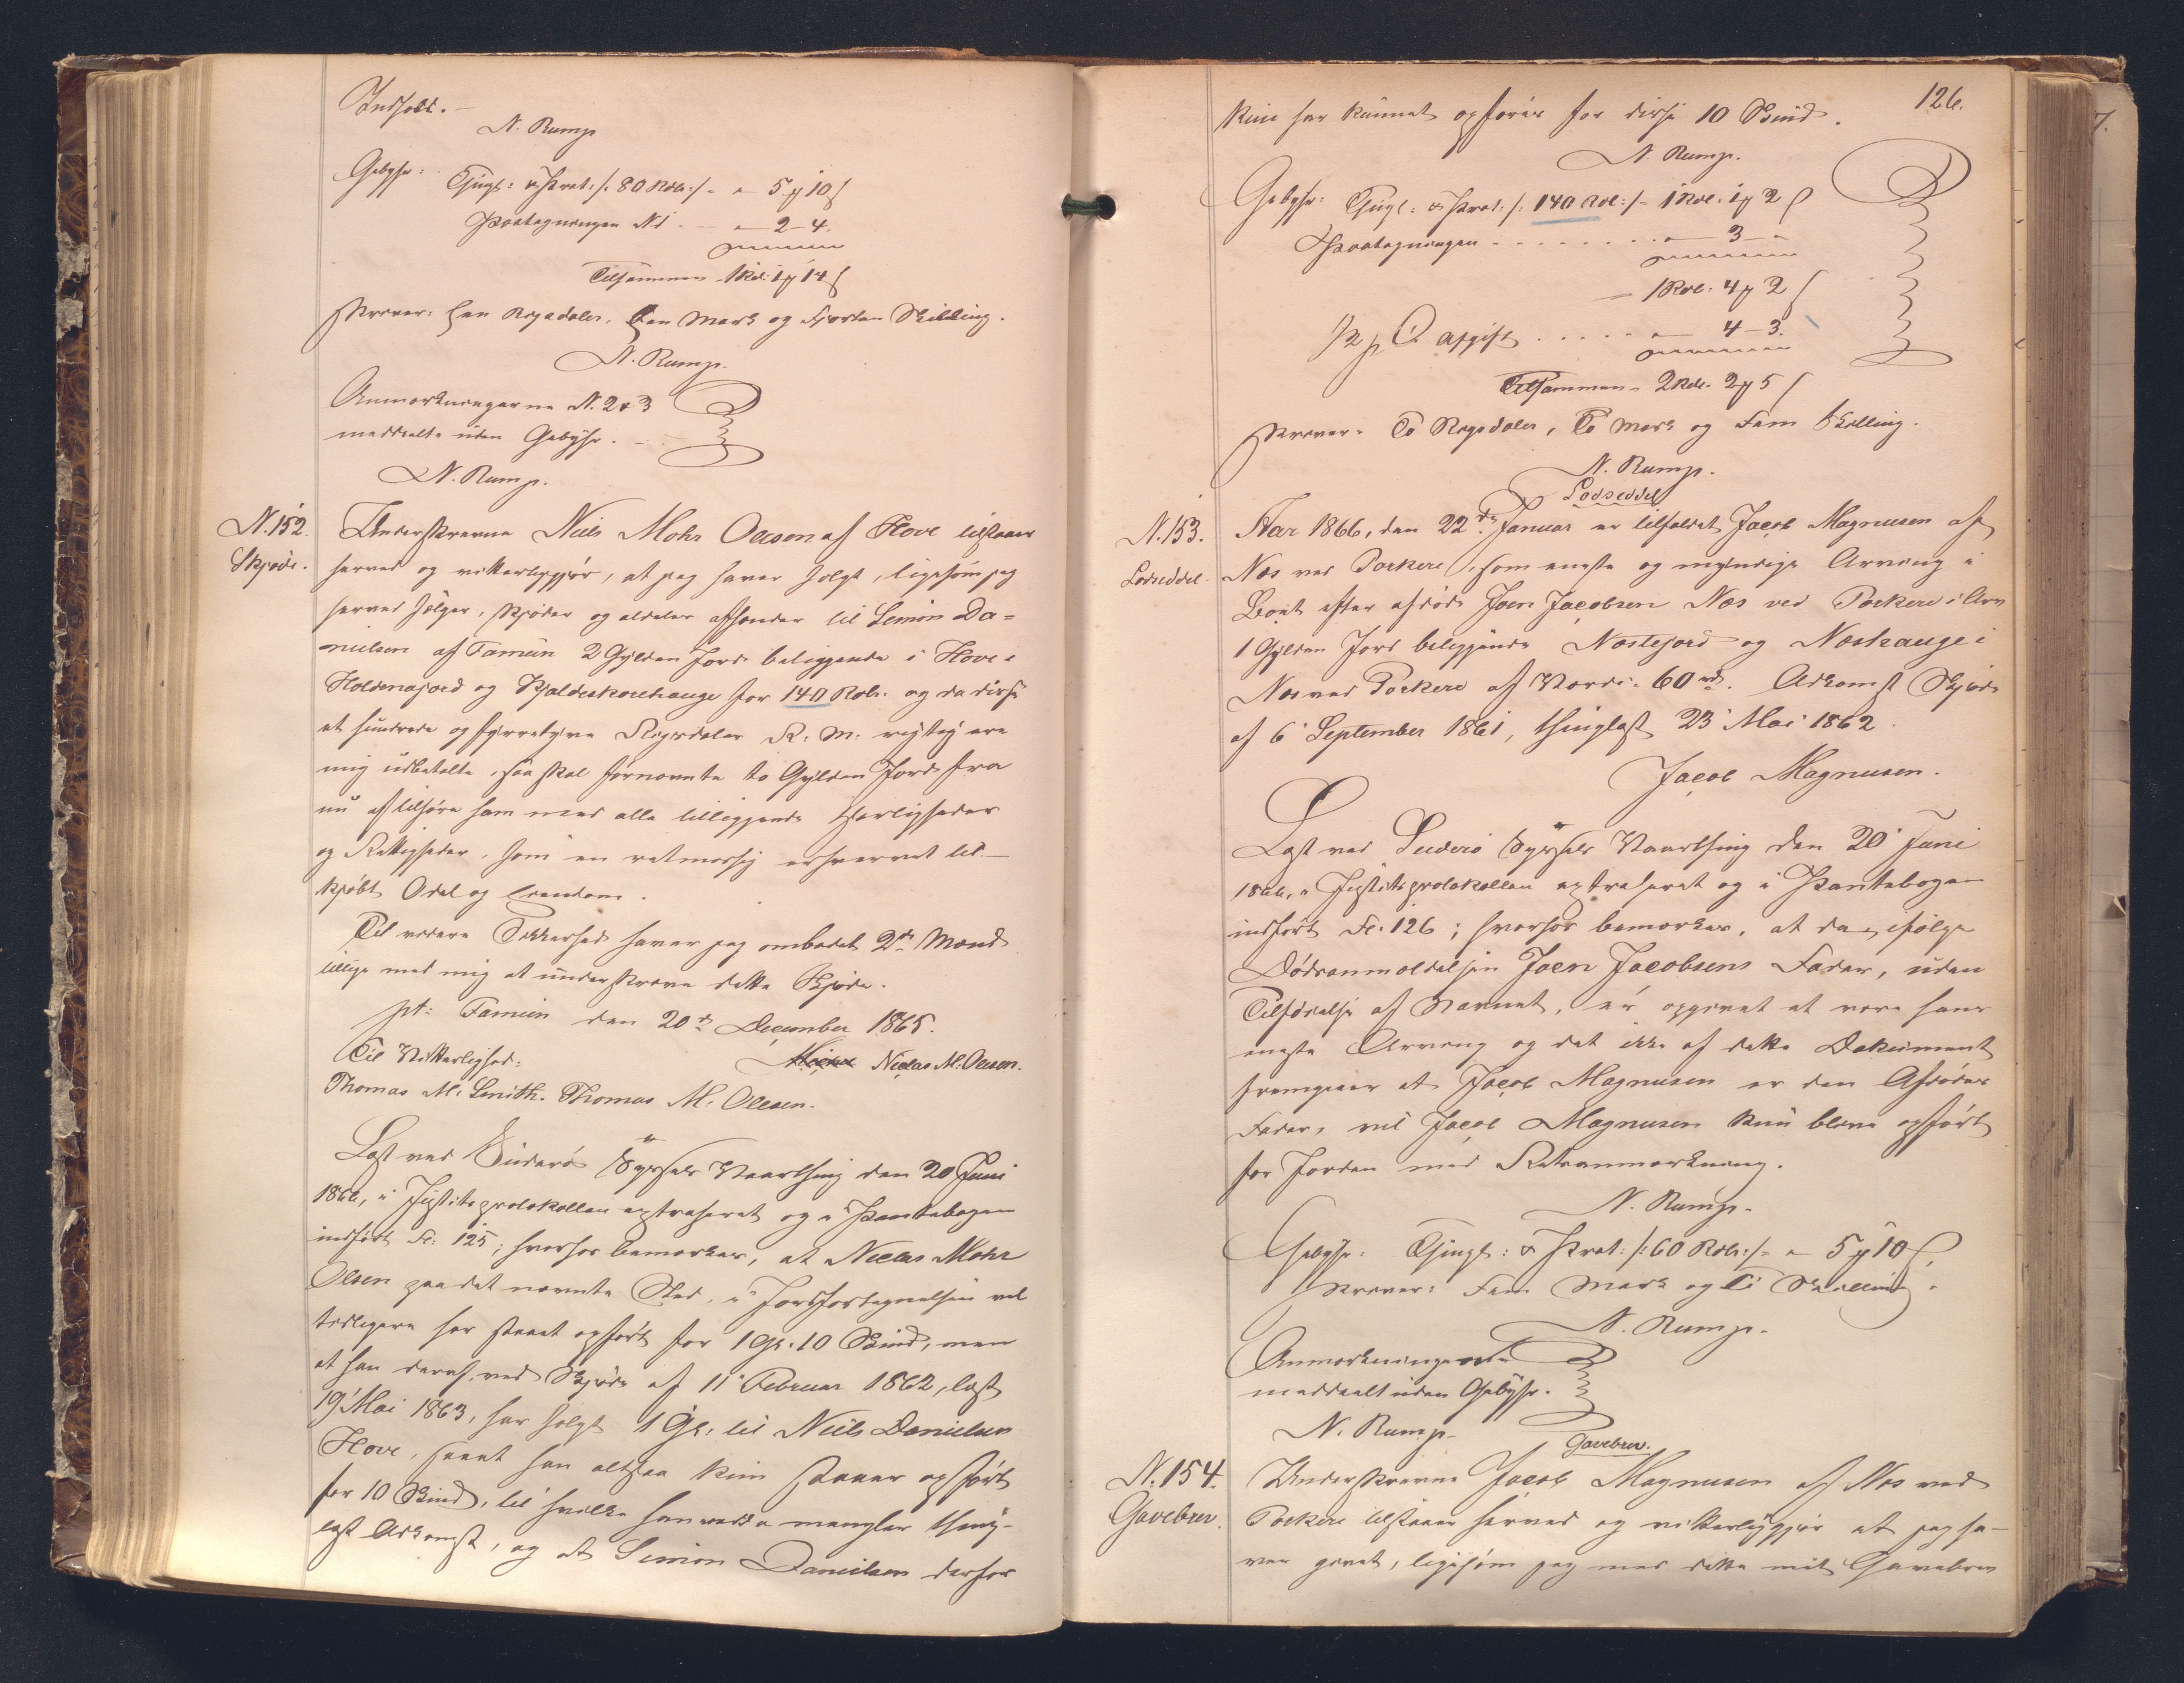 Indhold.
N. Rump
Gebyhr: Thingl: & Prot: /: 80 Rdlr :/ - " - 5 ɱ 10 ß
Paategningen N. 1 - " - 2 - 4.
Tilsammen 1 Rd: 1 ɱ 14 ß
skriver: Een Rigsdaler, Een Mark og Fjorten Skilling.
N. Rump.
Anmærkningerne N. 2 & 3
meddeelte uden Gebyhr.
N. Rump.
N. 152.
Skjøde.
Underskrevne Niels Mohr Olesen af Hove tilstaaer
herved og vitterliggjør, at jeg haver solgt, ligesom jeg
herved sælger, skjøder og aldeles afhænder til Simon Da=
nielsen af Famein 2 Gylden Jord beliggende i Hove i
Holdenajord og Kjaldeskorehauge for 140 Rdlr. og da disse
et hundrede og fyrretyve Rigsdaler R: M: rigtig ere
mig udbetalte, saa skal fornævnte to Gylden Jord fra
nu af tilhøre ham med alle tilliggende Herligheder
og Rettigheder, som en retmæssig erhvervet til-
kjøbt Odel og Eiendom.
Til videre Sikkerhed haver jeg ombedet 2de Mænd
tillige med mig at underskrive dette Skjøde.
pt: Famein den 20de December 1865.
Til Vitterlighed: Niclas M: Olesen.
Thomas M. Smith. Thomas M. Olesen.
Læst ved Suderø Syssels Vaarthing den 20 Juni
1866, i Justitsprotokollen extraheret og i Pantebogen
indført Fo: 125; hvorhos bemærkes, at Niclas Mohr
Olsen paa det nævnte Sted, i Jordfortegnelsen vel
tidligere har staaet opført for 1 Gl. 10 Skind, men
at han deraf, ved Skjøde af 11 Februar 1862, læst
19 Mai 1863, har solgt 1 Gl. til Niels Danielsen
Hove, saaat han altsaa kun staaer opført
for 10 Skind, til hvilke han endda mangler thing-
læst Adkomst, og at Simon Danielsen derfor
126.
kun har kunnet opføres for disse 10 Skind.
N. Rump.
Gebyhr: Thingl: & Prot: /: 140 Rdl: / - 1 Rdl. 1 ɱ 2 ß
Paategningen . . . . . . . - " - 3 -
1 Rdl: 4 ɱ 2 ß
1/2 p Ct Afgift . . . . . - " - 4 - 3.
Tilsammen - 2 Rdl. 2 ɱ 5 ß
skriver: To Rigsdaler, To Mark og Fem Skilling.
N. Rump.
Lodseddel
N. 153.
Lodseddel.
Aar 1866, den 22de Januar er tilfaldet Jacob Magnusen af
Næs ved Porkere, som eneste og myndige Arving i
Boet efter afdøde Joen Jacobsen Næs ved Porkere i Arv
1 Gylden Jord beliggende Næstejord og Næshauge i
Næs ved Porkere af Værdi: 60 rd. Adkomst Skjøde
af 6 September 1861, thinglæst 23 Mai 1862
Jacob Magnusen.
Læst ved Suderø Syssels Vaarthing den 20 Juni
1866, i Justitsprotokollen extraheret og i Pantebogen
indført Fo. 126; hvorhos bemærkes, at da, ifølge
Dødsanmeldelsen Joen Jacobsens Fader, uden
Tilføielse af Navnet, er opgivet at være hans
eneste Arving og det ikke af dette Dokument
fremgaaer at Jacob Magnusen er den Afdødes
Fader, vil Jacob Magnusen kun blive opført
for Jorden med Retsanmærkning.
N. Rump.
Gebyhr: Thingl: & Prot: /: 60 Rdlr :/ - " - 5 ɱ 10 ß,
skriver: Fem Mark og Ti Skilling.
N. Rump.
Anmærkningerne
meddeelt uden Gebyhr.
N. Rump.
Gavebrev.
N. 154.
Gavebrev.
Underskrevne Jacob Magnusen af Næs ved
Porkere tilstaaer herved og vitterliggjør at jeg ha-
ver givet, ligesom jeg med dette mit Gavebrev